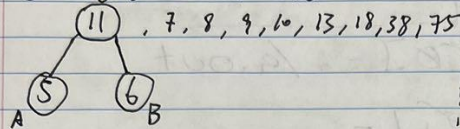 11 , 7, 8, 9, 10, 13, 18, 38, 75
5 6
A B